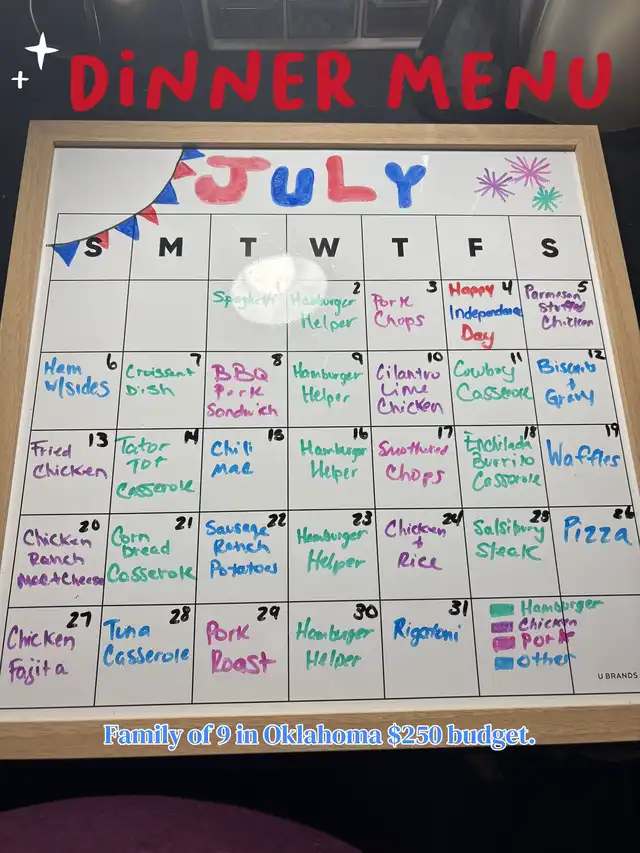 DINNER MENU
JULY
S M T W T F S
Spaghetti 1
2
Hamburger
Helper
3
Pork
Chops
Happy 4
Independence
Day
5
Parmesan
Stuffed
Chicken
6
Ham
w/sides
7
Croissant
Dish
8
BBQ
Pork
Sandwich
9
Hamburger
Helper
10
Cilantro
Lime
Chicken
11
Cowboy
Casserole
12
Biscuits
+
Gravy
13
Fried
Chicken
14
Tator
Tot
Casserole
15
Chili
Mac
16
Hamburger
Helper
17
Smothered
Chops
18
Enchilada
Burrito
Casserole
19
Waffles
20
Chicken
Ranch
Mac+Cheese
21
Corn
bread
Casserole
22
Sausage
Ranch
Potatoes
23
Hamburger
Helper
24
Chicken
+
Rice
25
Salsibury
Steak
26
Pizza
27
Chicken
Fajita
28
Tuna
Casserole
29
Pork
Roast
30
Hamburger
Helper
31
Rigatoni
Hamburger
Chicken
Pork
Other
U BRANDS
Family of 9 in Oklahoma $250 budget.